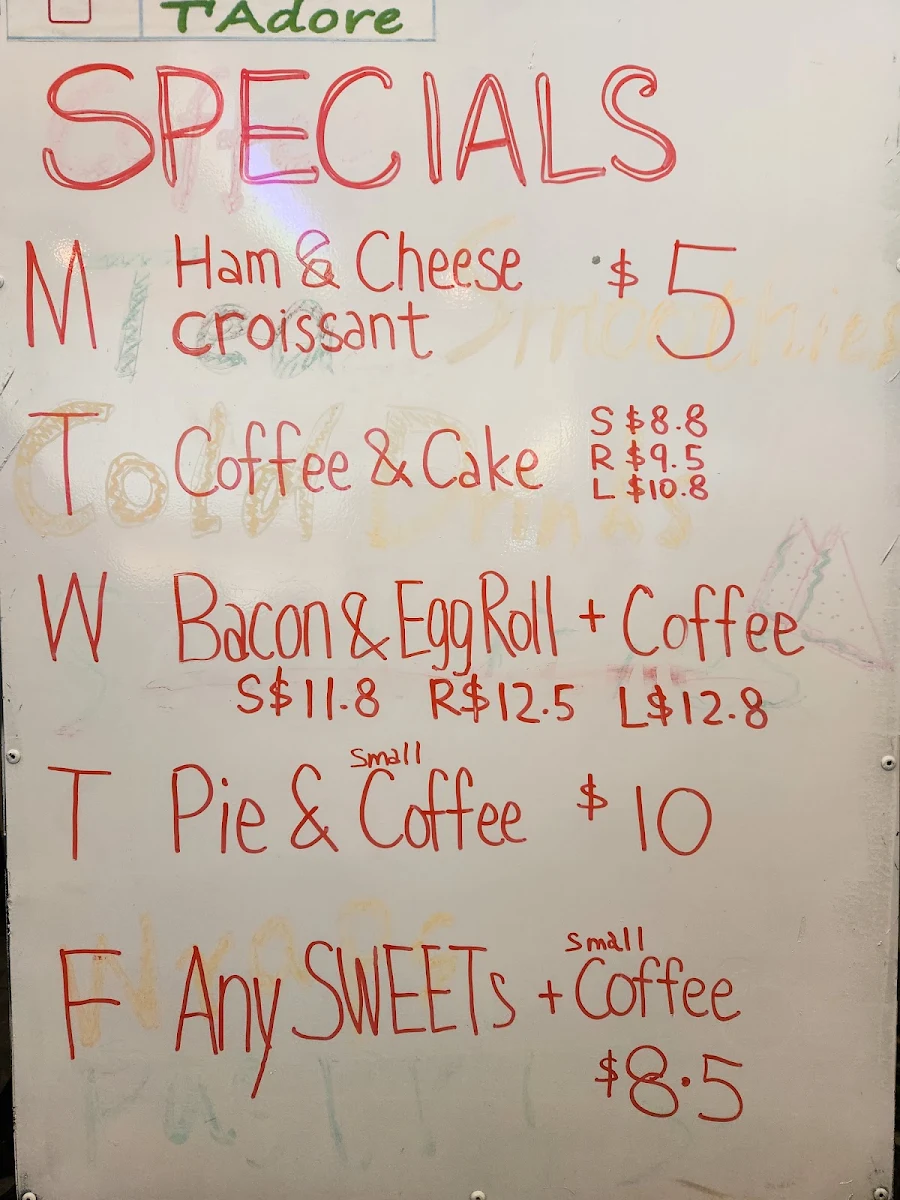 T'Adore
SPECIALS
M Ham & Cheese $5
croissant
T Coffee & Cake S $8.8
R $9.5
L $10.8
W Bacon & Egg Roll + Coffee
S$11.8 R$12.5 L$12.8
small
T Pie & Coffee $10
small
F Any SWEETs + Coffee
$8.5
Tea Smoothies
Cold Drinks